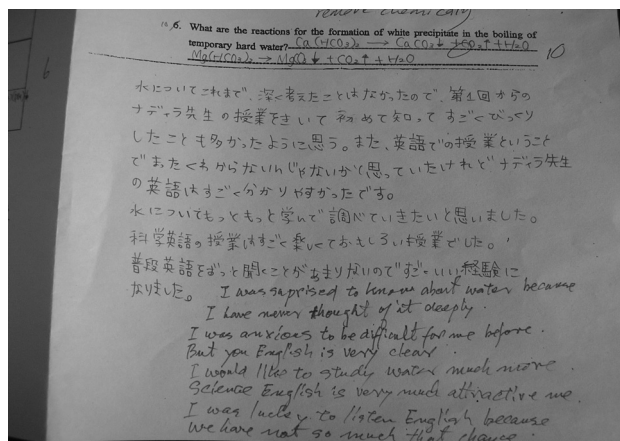 remove chemically
6. What are the reactions for the formation of white precipitate in the boiling of
temporary hard water? Ca(HCO3)2 → CaCO3↓ + CO2↑ + H2O
Mg(HCO3)2 → MgCO3↓ + CO2↑ + H2O
10
6
水についてこれまで、深く考えたことはなかったので、第1回からの
ナディラ先生の授業をきいて初めて知ってすごくびっくり
したことも多かったように思う。また、英語での授業ということ
でまったくわからないんじゃないかと思っていたけれどナディラ先生
の英語はすごく分かりやすかったです。
水についてもっともっと学んで調べていきたいと思いました。
科学英語の授業はすごく楽しくておもしろい授業でした。
普段英語をずっと聞くことがあまりないのですごくいい経験に
なりました。 I was suprised to know about water because
I have never thought of it deeply.
I was anxious to be difficult for me before.
But you English is very clear.
I would like to study water much more.
Science English is very much attractive me.
I was lucky to listen English because
we have not so much that chance.